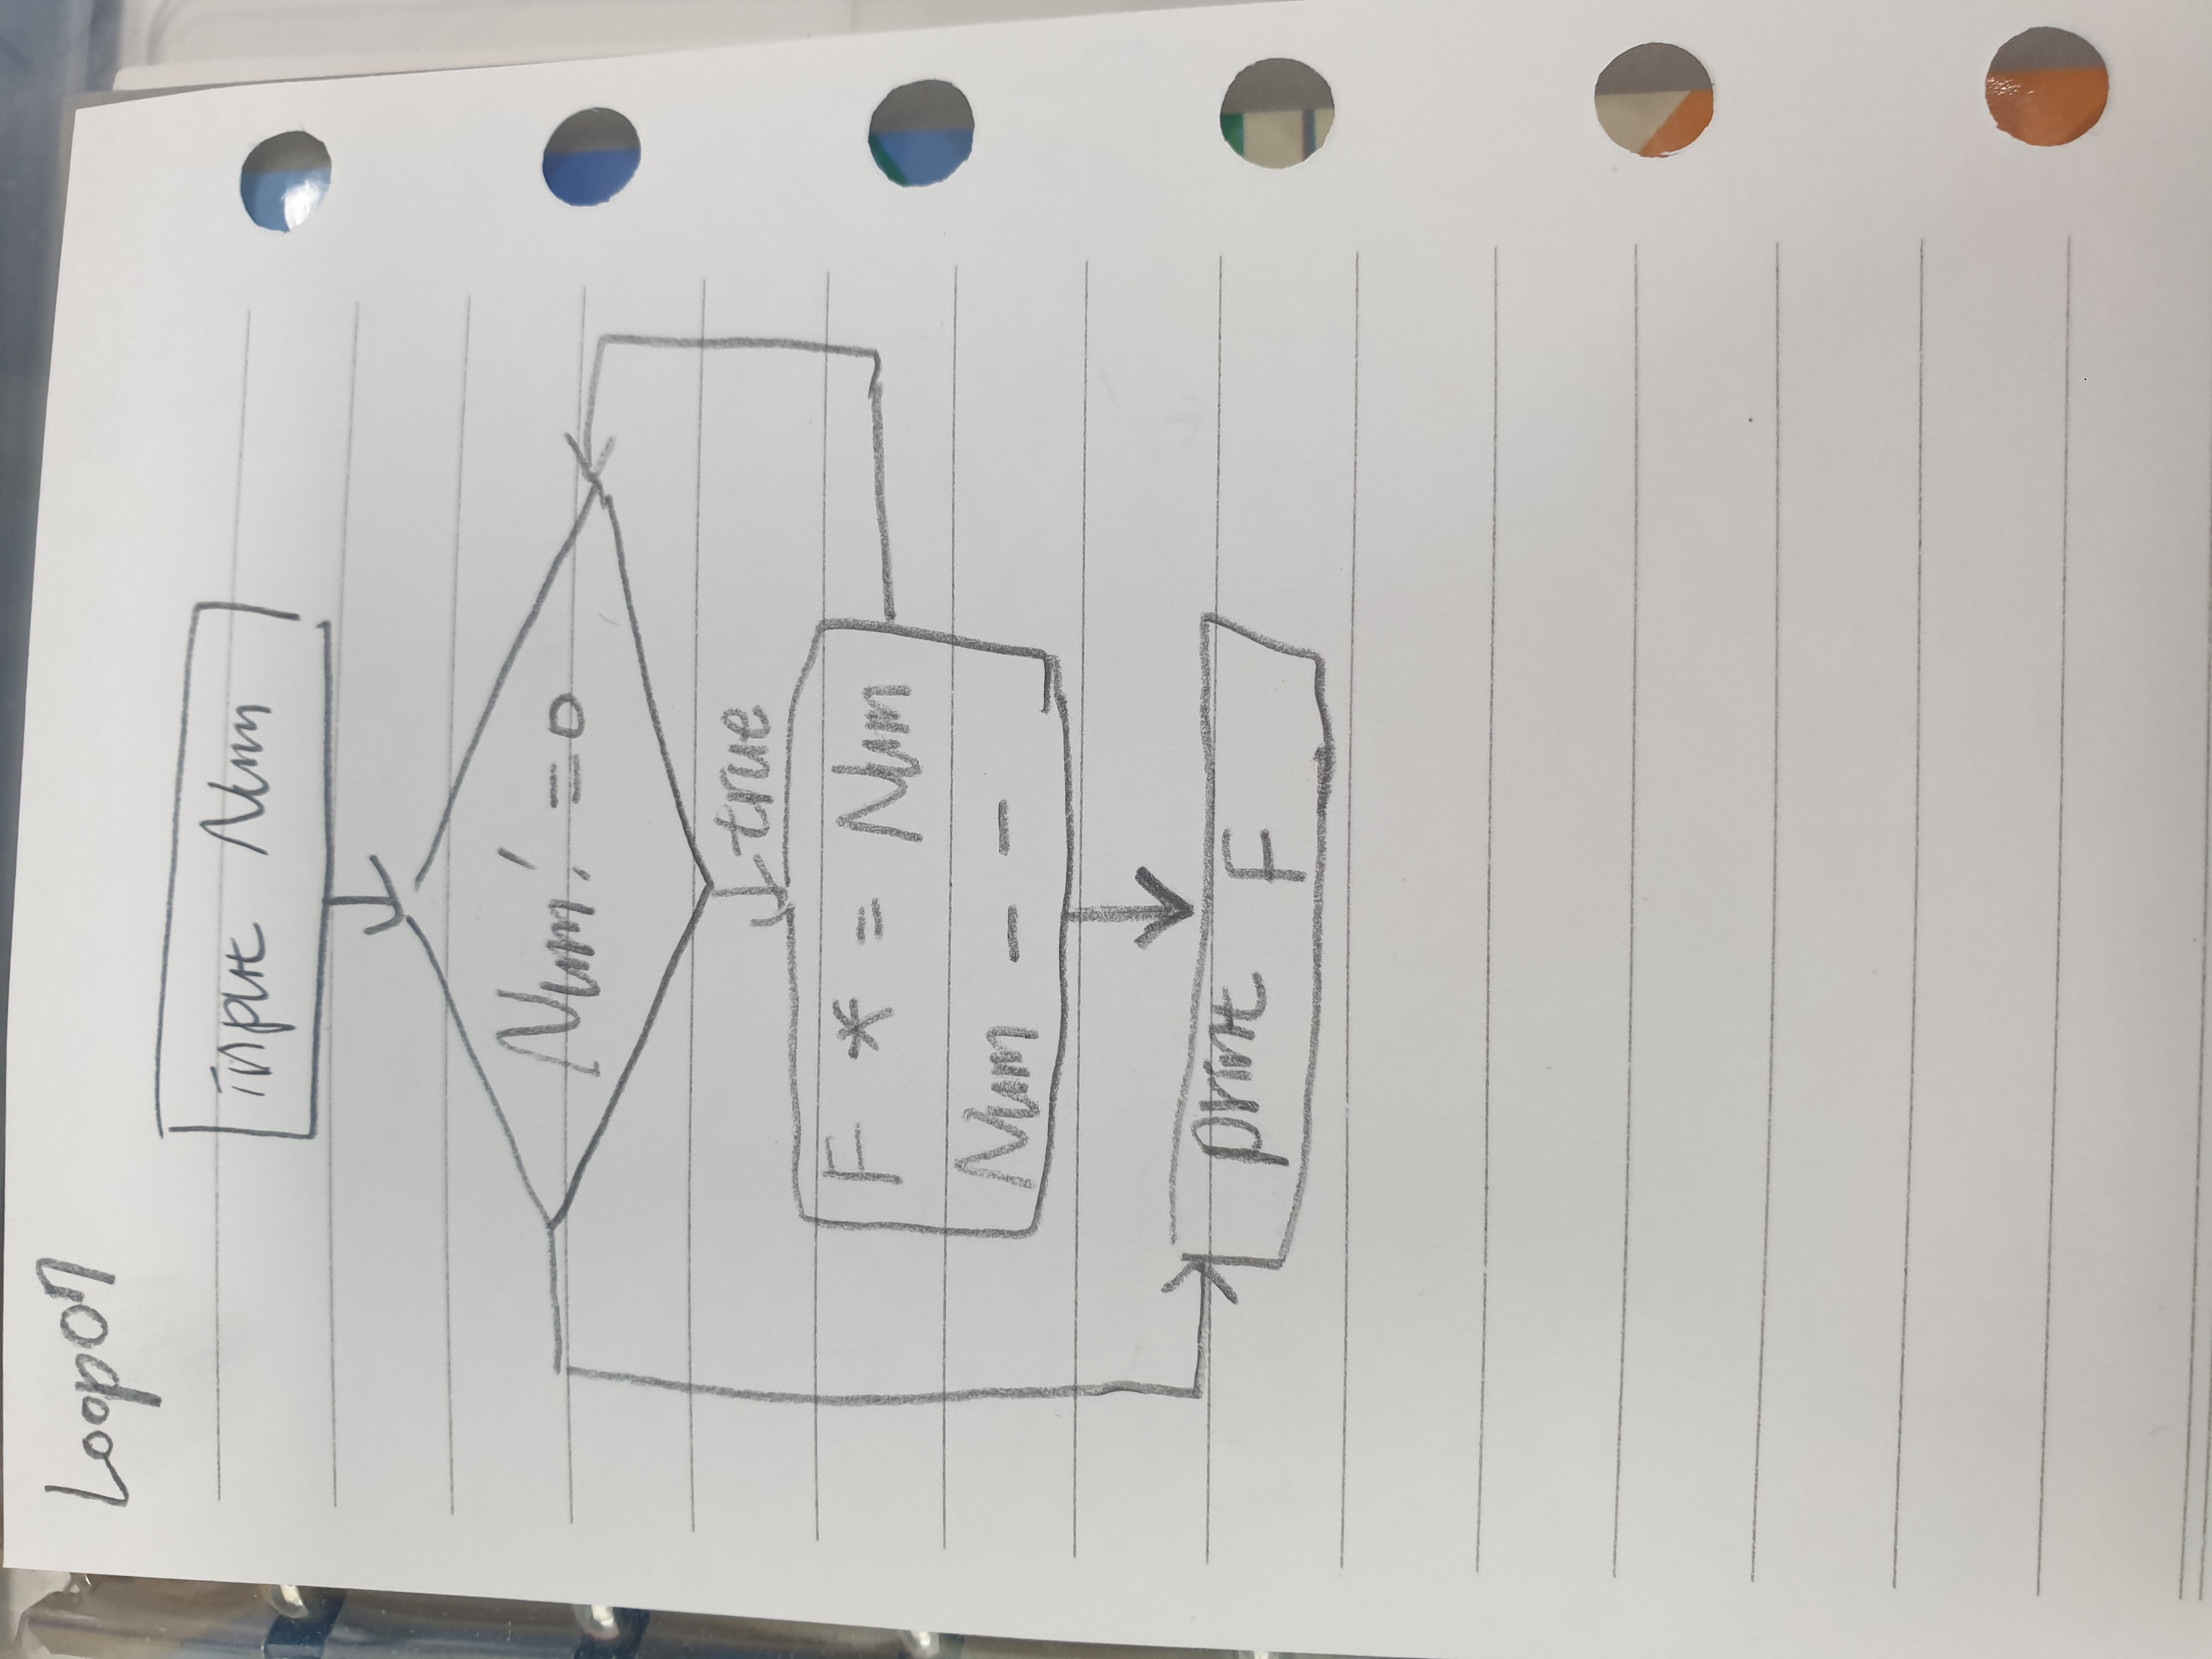 Loop07
input Num
Num! =0
true
F * = Num
Num - -
print F